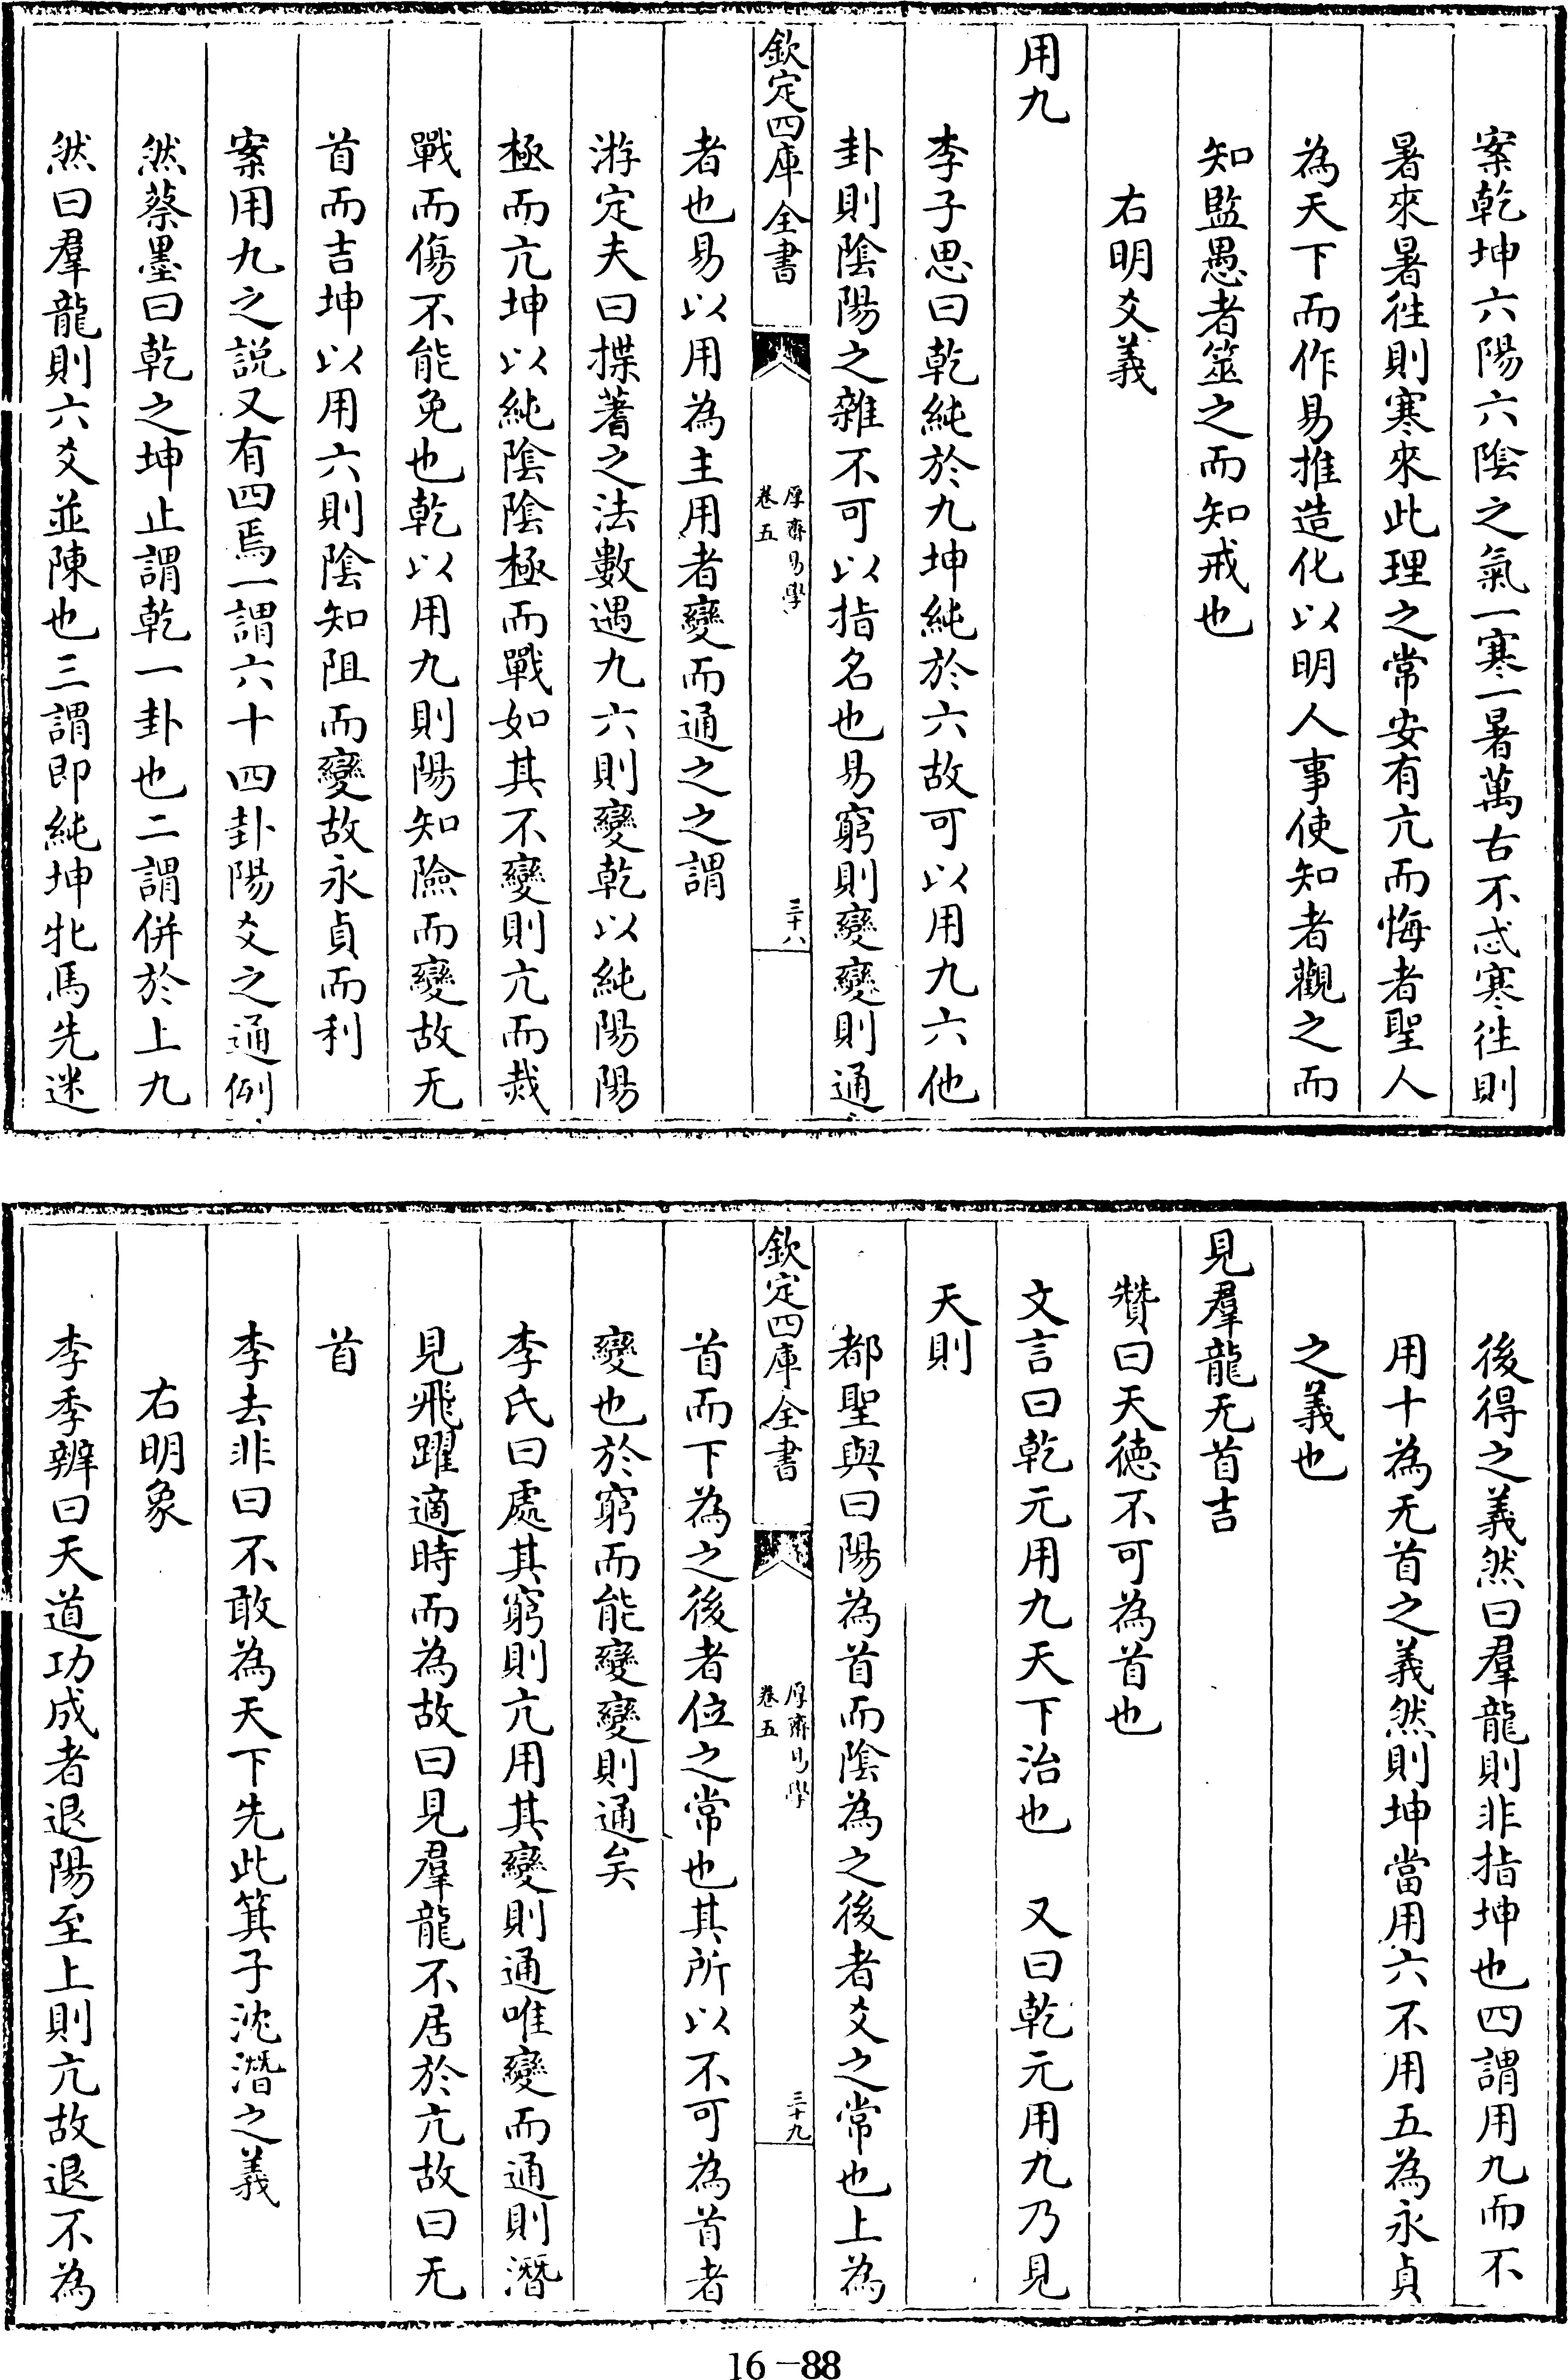 案乾坤六陽六陰之氣一寒一暑萬古不忒寒徃則
暑來暑徃則寒來此理之常安有亢而悔者聖人
為天下而作易推造化以明人事使知者觀之而
知監愚者筮之而知戒也
右明爻義
用九
李子思曰乾純於九坤純於六故可以用九六他
卦則陰陽之雜不可以指名也易窮則變變則通
欽定四庫全書
厚齋易學
卷五
三十八
者也易以用為主用者變而通之之謂
游定夫曰揲蓍之法數遇九六則變乾以純陽陽
極而亢坤以純陰陰極而戰如其不變則亢而烖
戰而傷不能免也乾以用九則陽知險而變故无
首而吉坤以用六則陰知阻而變故永貞而利
案用九之說又有四焉一謂六十四卦陽爻之通例
然蔡墨曰乾之坤止謂乾一卦也二謂併於上九
然曰羣龍則六爻並陳也三謂即純坤牝馬先迷
後得之義然曰羣龍則非指坤也四謂用九而不
用十為无首之義然則坤當用六不用五為永貞
之義也
見羣龍无首吉
贊曰天德不可為首也
文言曰乾元用九天下治也 又曰乾元用九乃見
天則
都聖與曰陽為首而陰為之後者爻之常也上為
欽定四庫全書
厚齋易學
卷五
三十九
首而下為之後者位之常也其所以不可為首者
變也於窮而能變變則通矣
李氏曰處其窮則亢用其變則通唯變而通則潛
見飛躍適時而為故曰見羣龍不居於亢故曰无
首
李去非曰不敢為天下先此箕子沈潛之義
右明象
李季辨曰天道功成者退陽至上則亢故退不為
16-88